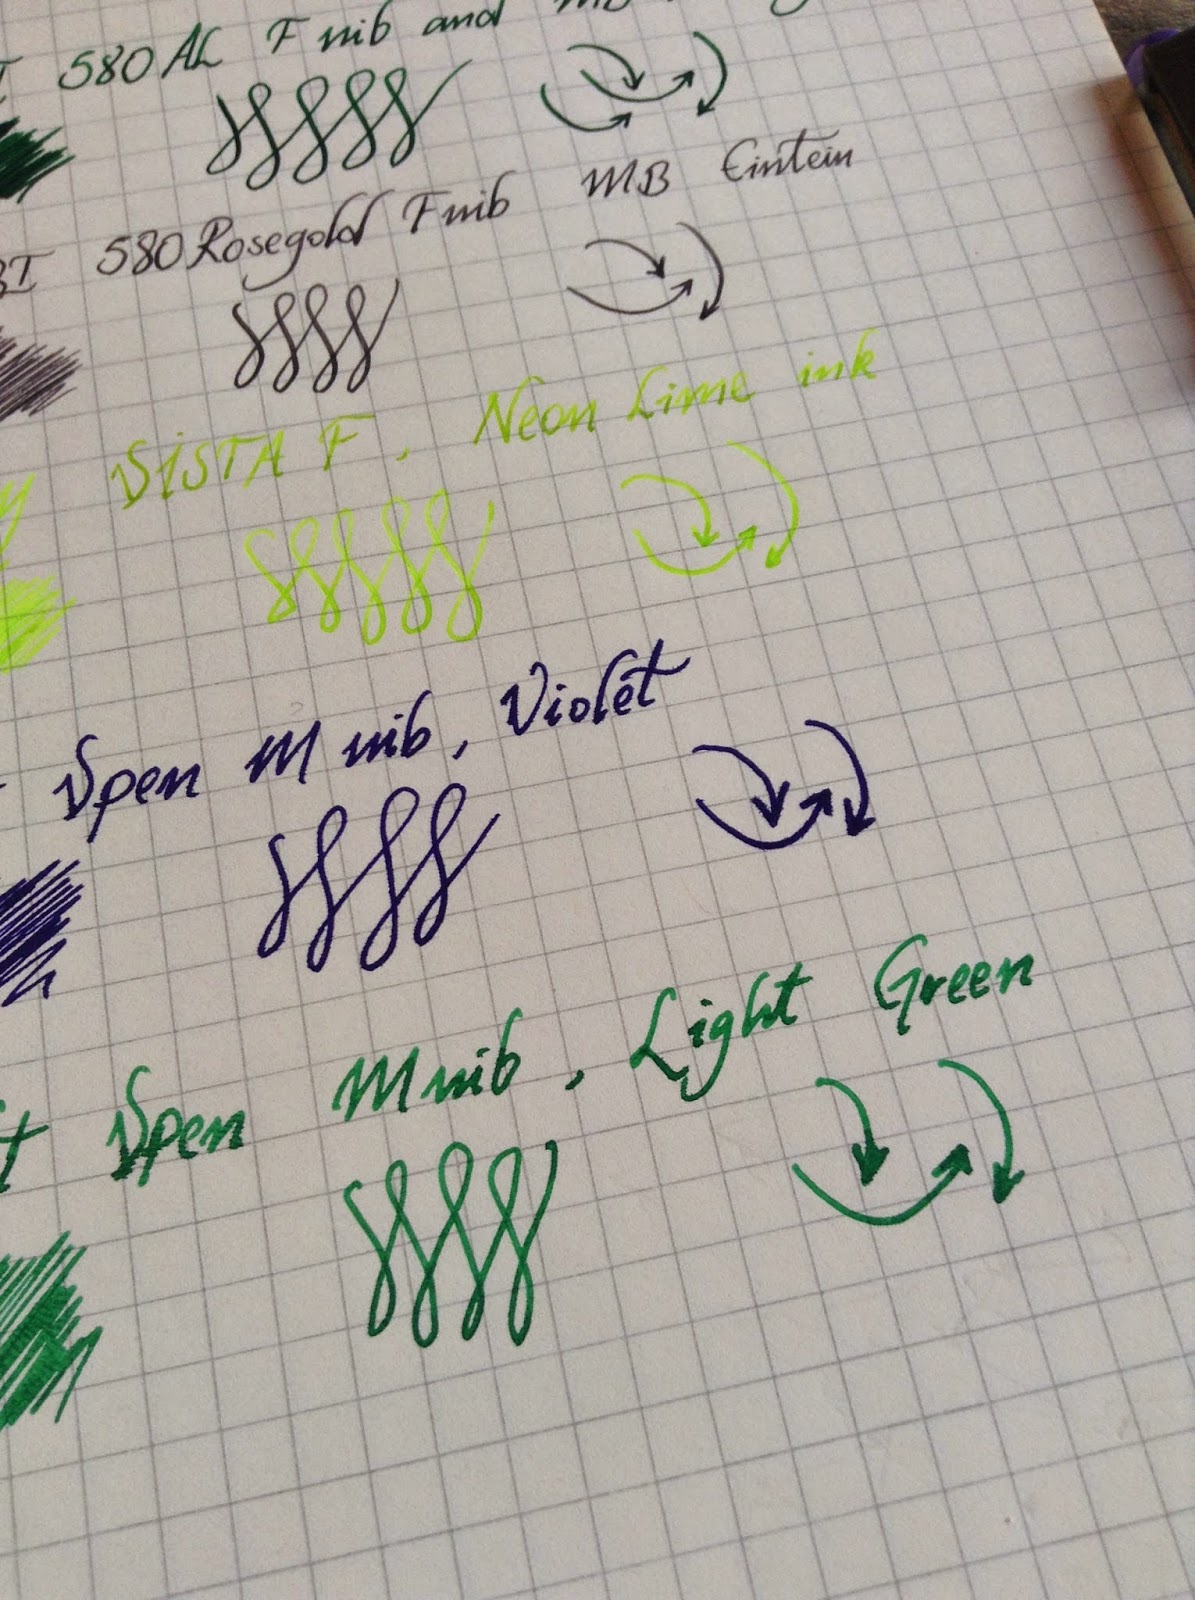 580 AL F nib and MB
580 Rosegold F nib MB Eintein
VISTA F, Neon Lime ink
Vpen M nib, Violet
Vpen M nib, Light Green